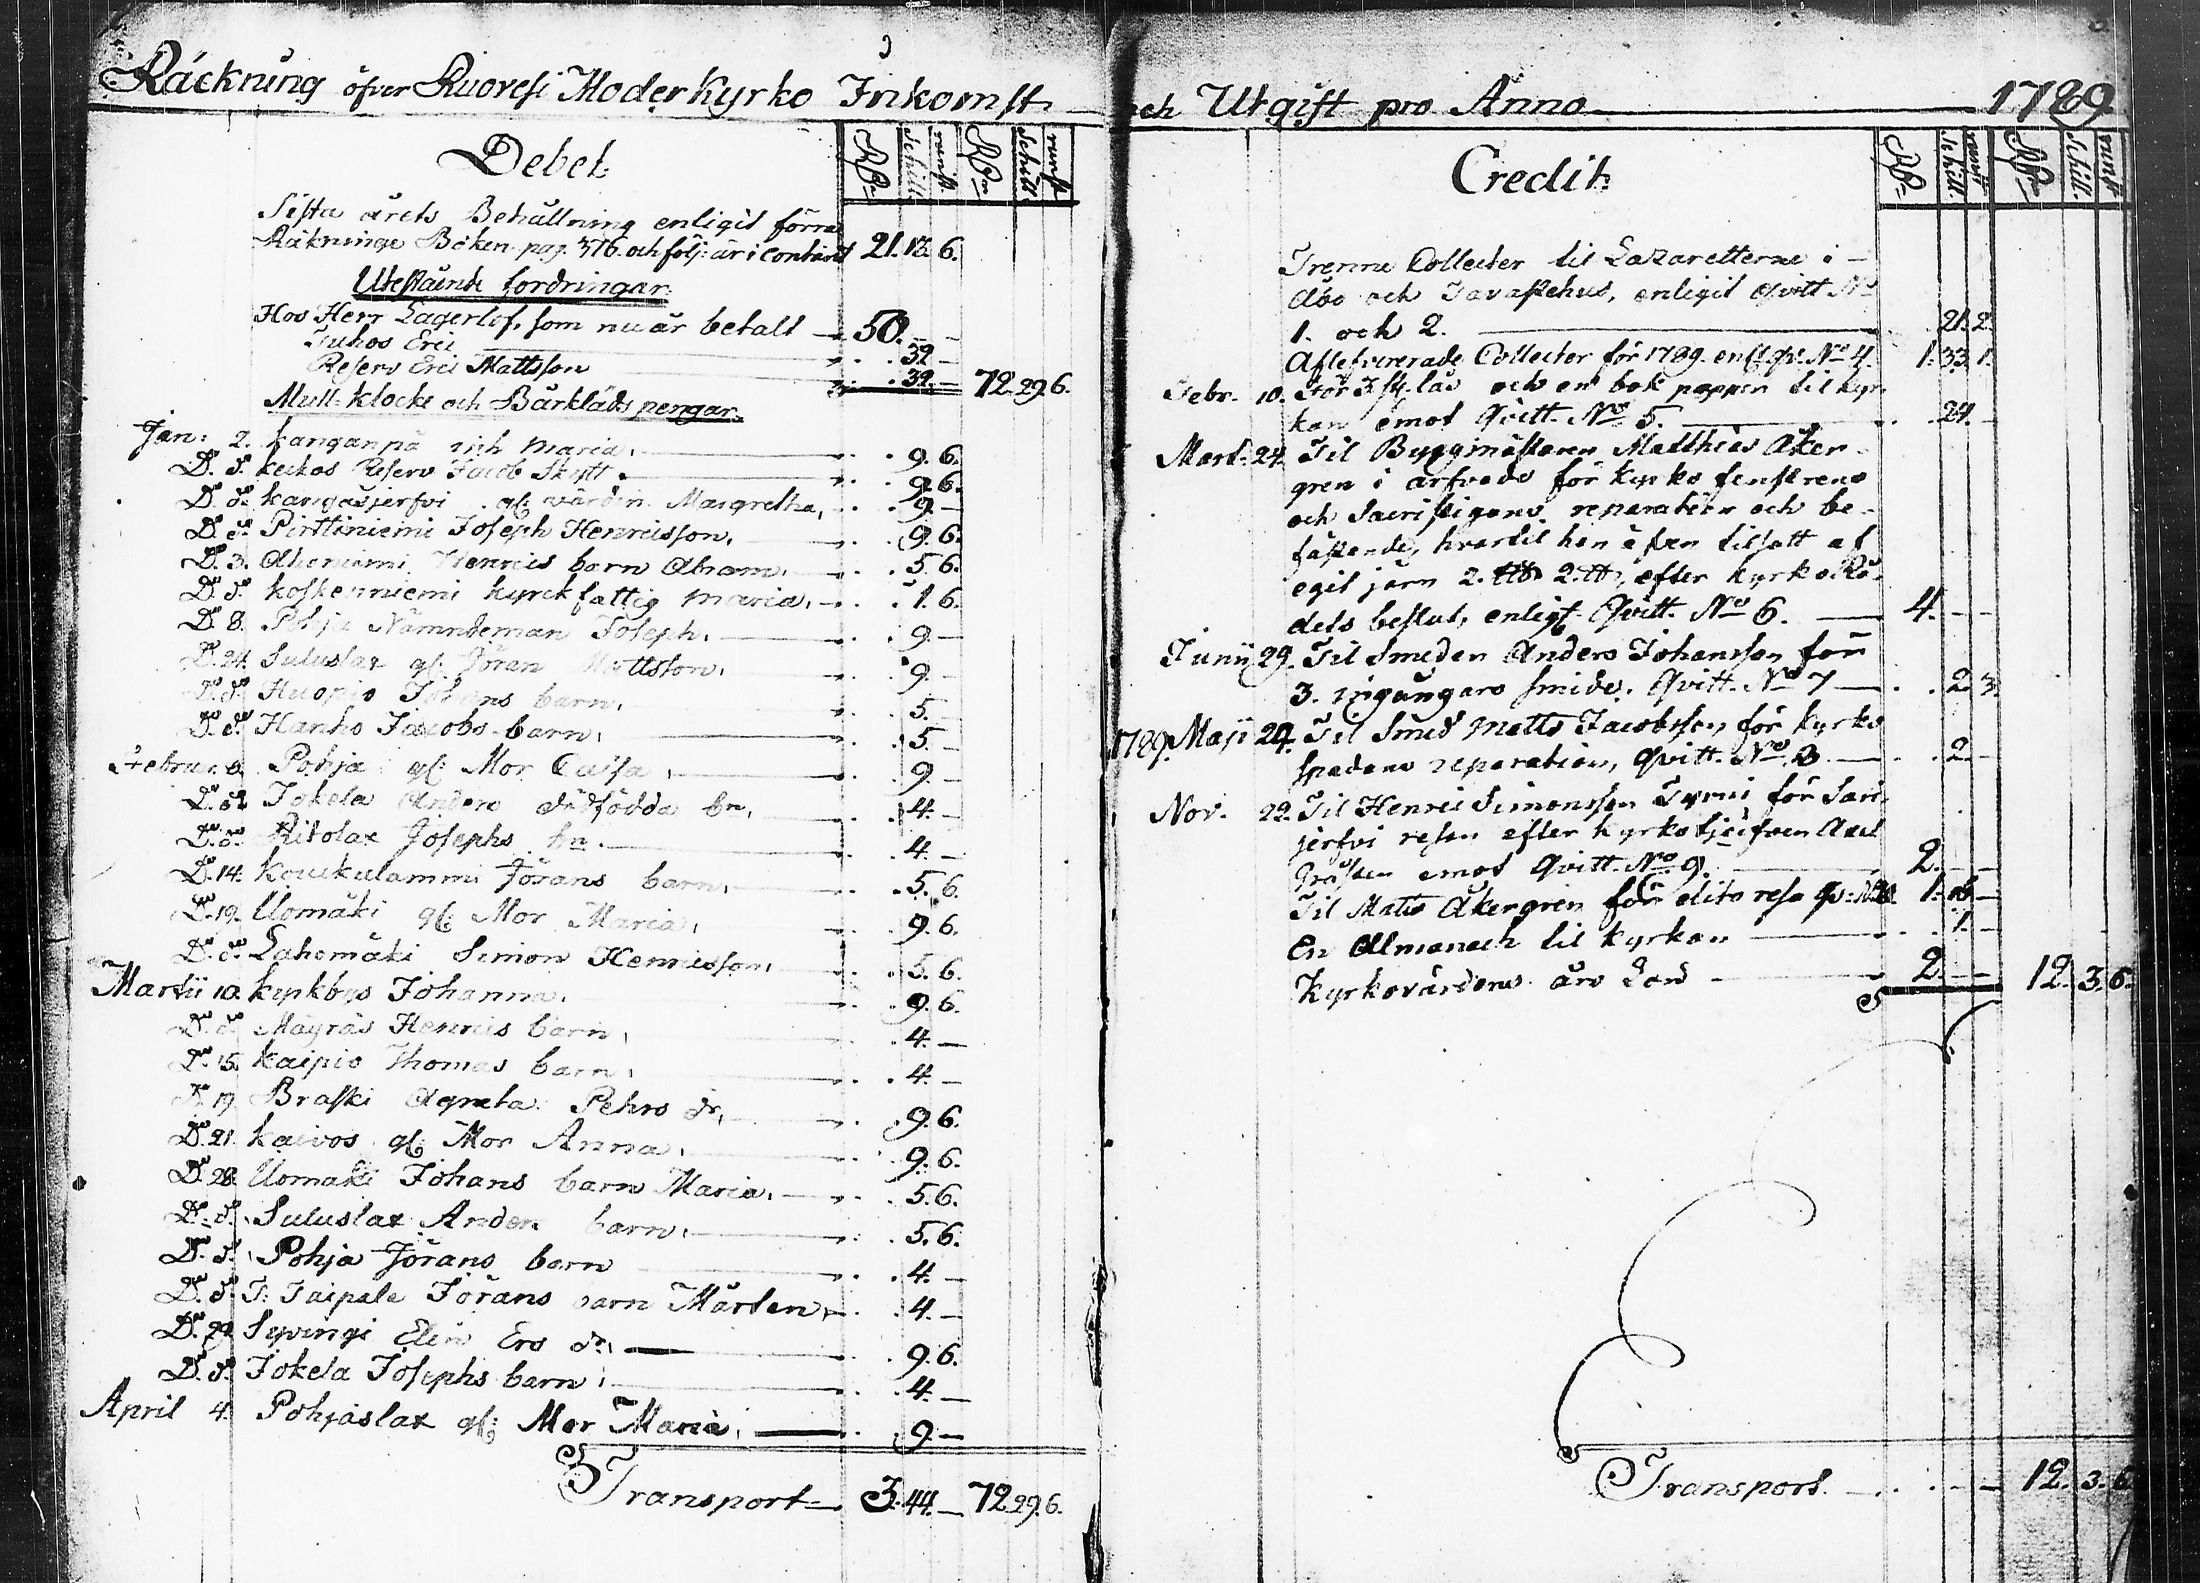 Räckning öfver Ruovesi Moderkyrko Inkomst och Utgift pro Anno 1789
Debet.
Rdr schill. runst. Rdr schill. runst
Sista årets Behållning enligit förra
Räkninge Boken pag. 376. och följ: är i contant 21. 13. 6.
Utestående fordringar.
Hos Herr Lagerlöf, som nu är betalt 50. – –
Juhos Eric 32 –
Reserv Eric Mattsson 32. – 72. 29. 6.
Mull-klocke och Bårkläds pengar.
Jan: 2. kanganpä Maria. 9. 6.
D. d. keikos Reserv Jacob Skytt. 9. 6.
D. d. kangasjerfvi gl. värdin. Margretha, 9. –
D. d. Pirttiniemi Joseph Henricsson, 9. 6.
D. 3. Aheniemi Henrics barn Abram. 5. 6.
D. d. koskenniemi kyrckfattig Maria, 1. 6.
D. 8. Pohja Nämndeman Joseph. 9. –
D. 24. Suluslax gl. Jöran Mattsson. 9. –
D. d. Huopio Johans barn. 5. –
D. d. Hanho Jacobs barn. 5. –
Februr. 6. Pohja gl: Mor Caisa 9. –
D. d. Jokela Anders dödfödda bn. 4. –
D. d. Ritolax Josephs bn. 4. –
D. 14. Koukulammi Jörans barn. 5. 6.
D. 19. Uomäki gl: Mor Maria. 9. 6.
D. d. Lahomäki Simon Henricsson. 5. 6.
Martii 10. kyrkbys Johanna. 9. 6.
D. d. Mäyräs Henrics barn 4. –
D. 15. Kaipio Thomas barn. 4. –
D. 19. Braski Agneta Pehrs dr. 9. 6.
D. 21. kaivos gl: Mor Anna. 9. 6.
D. 28. Uomäki Johans barn Maria. 5. 6.
D. d. Suluslax Anders barn. 5. 6.
D. d. Pohja Jörans barn 4. –
D. d. T: Taipale Jörans barn Mårten. 4. –
D. 29. Syvingi Elin Ers dr. 9. 6.
D. d. Jokela Josephs barn. 4. –
April 4. Pohjaslax gl: Mor Maria. 9. –
Transport 3. 44. – 72 29. 6.
Credit.
Rdr schill. runst Rdr schill. runst
Trenne Collecter til Lazaretterne i
Åbo och Tavastehus, enligit Qvitt No
1. och 2. 21. 2.
Aflefvererade Collecter för 1789. enl. qv. No 4. 1. 33. 1.
Febr. 10. För 3 st. lås och en bok papper til kyr
kan emot Qvitt. No 5. 24. –
Mart. 24. Til Byggmästaren Matthias Åker-
gren i arfvode för kyrko fenstrens
och Sacristigans reparation och be-
fästande, hvartil han äfven tilsatt af
egit järn 2. ℔, efter kyrkoRå-
dets beslut, enligt Qvitt. No 6. 4. – –
Junii 29. Til Smeden Anders Johansson för
3. ingångars smide. Qvitt. No 7 2. 3.
1789. Maji 24. Til Smed Matts Jacobsson, för kyrko
spadens reparation, Qvitt. No 8. 2. –
Nov. 22. Til Henric Simonsson Tyrni för Sari
jerfvi resan efter kyrkotjufven Axel
Gråsten emot Qvitt. No 9. 2. – –
Til Matts Åkergren för dito resa qv: 1. 16 –
En Almanach til kyrkan 1. –
Kyrkovärdens års Lön 2. – – 12. 3. 6.
Transport. 12. 3. 6.